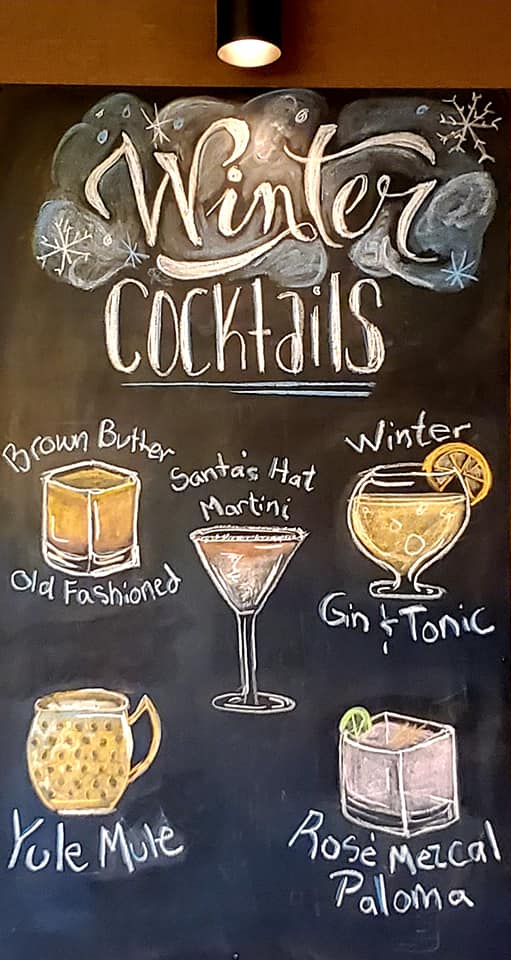 Winter
Cocktails
Brown Butter
Old Fashioned
Santa's Hat
Martini
Winter
Gin & Tonic
Yule Mule
Rosé Mezcal
Paloma